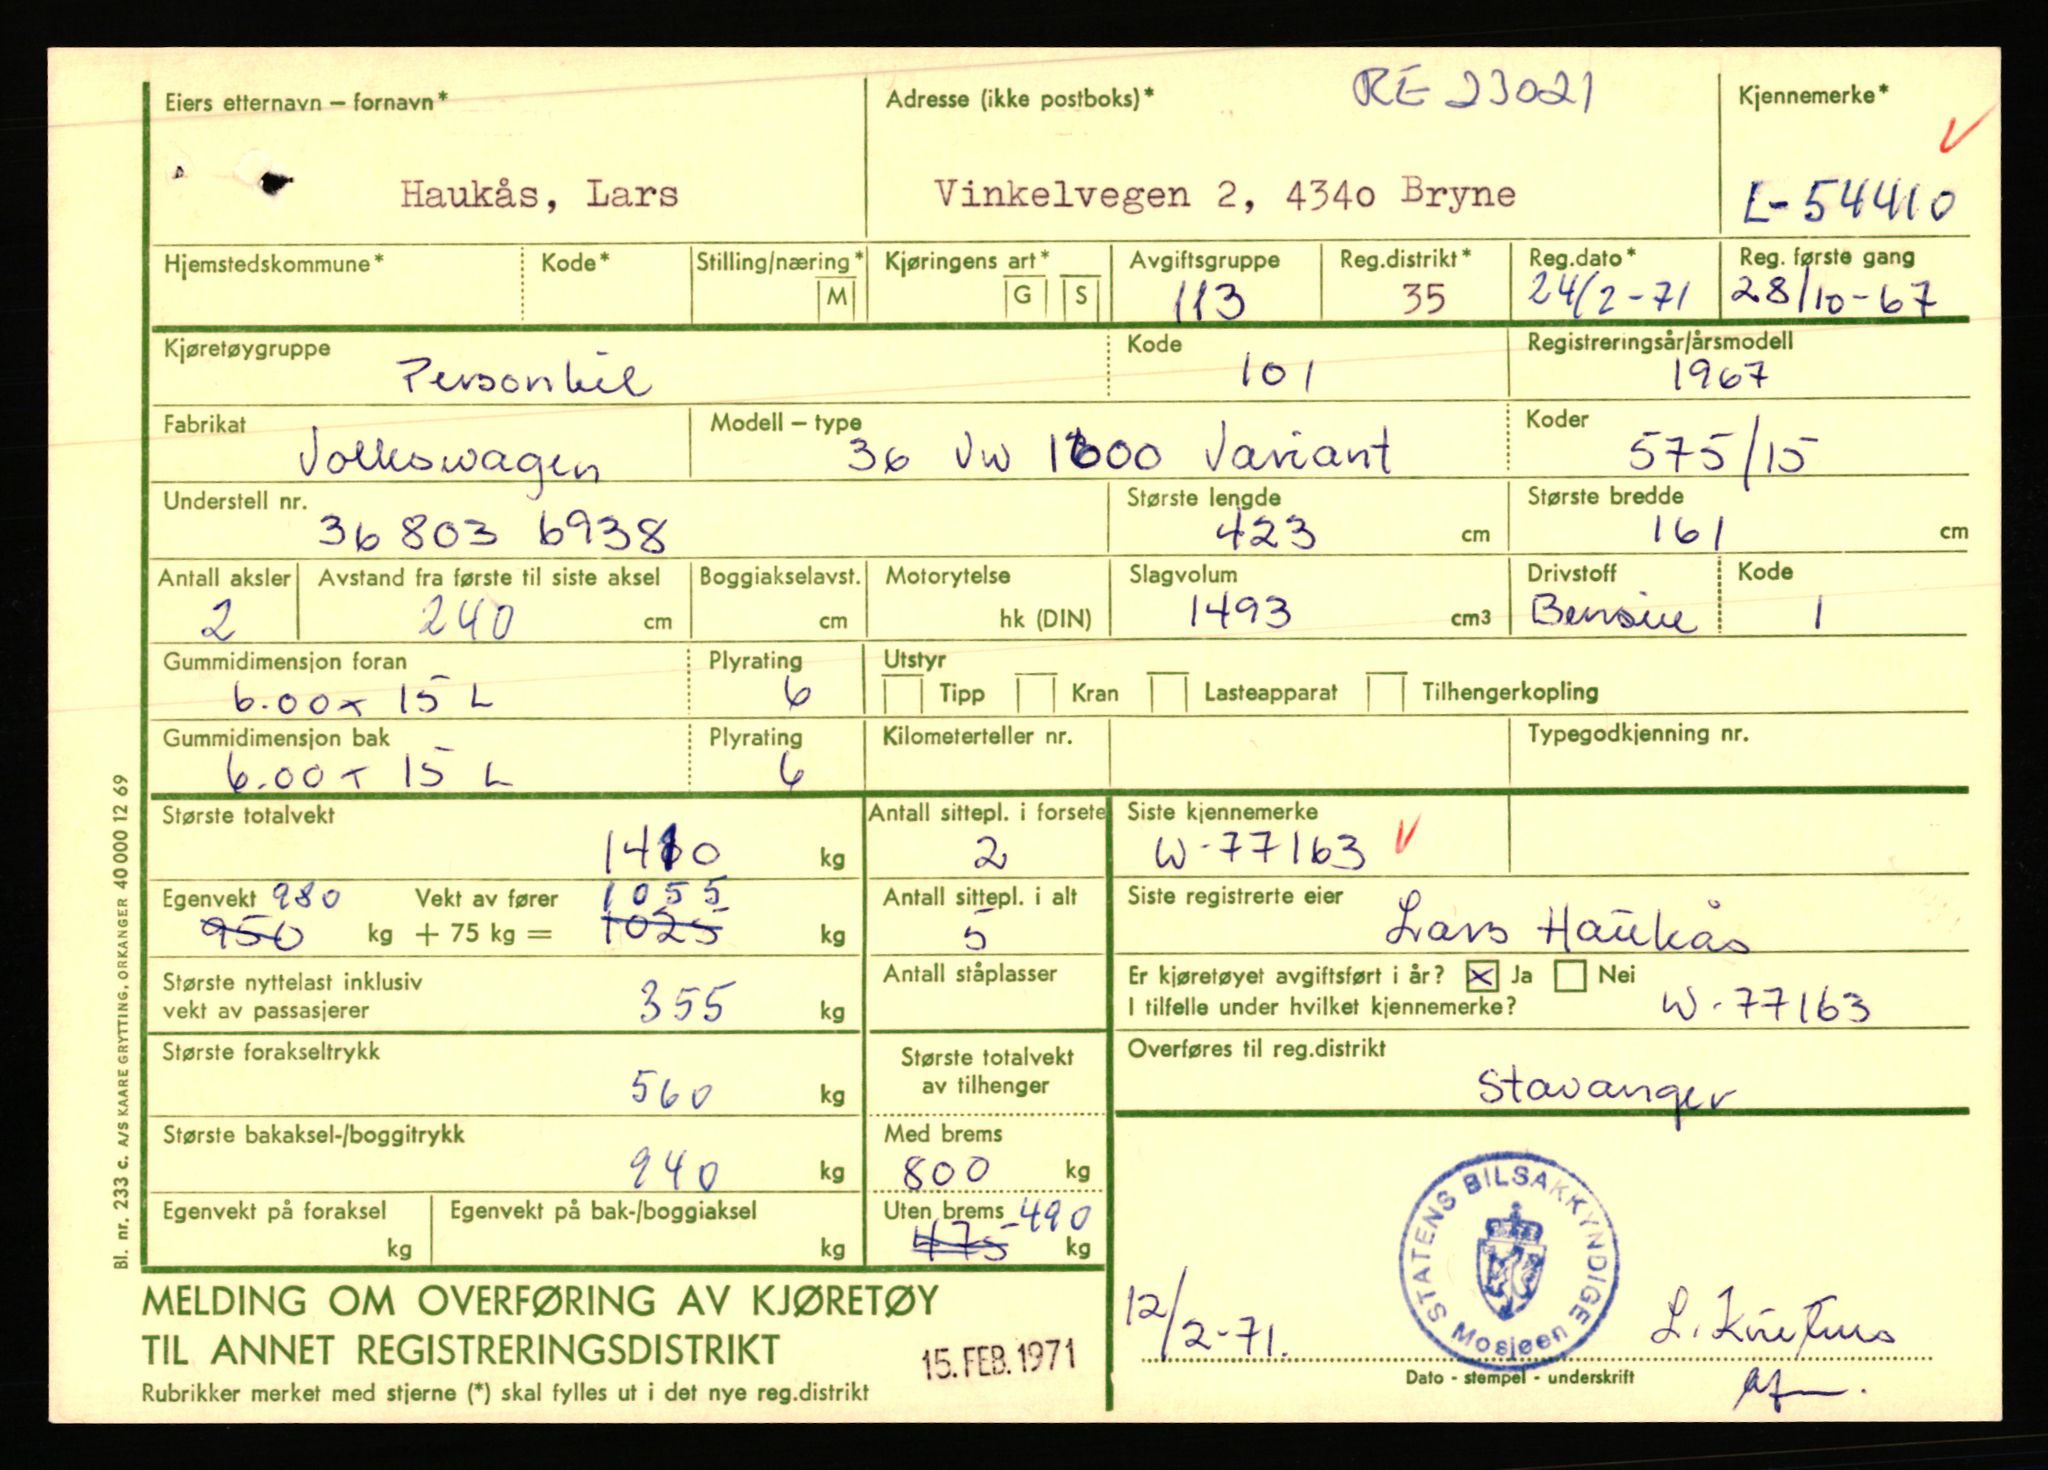 Eiers etternavn – fornavn* Adresse (ikke postboks)* RE 23021 Kjennemerke*
Haukås, Lars Vinkelvegen 2, 4340 Bryne L-54410
Hjemstedskommune* Kode* Stilling/næring* Kjøringens art* Avgiftsgruppe Reg.distrikt* Reg.dato* Reg. første gang
M G S 113 35 24/2-71 28/10-67
Kjøretøygruppe Kode Registreringsår/årsmodell
Personbil 101 1967
Fabrikat Modell – type Koder
Volkswagen 36 VW 1600 Variant 575/15
Understell nr. Største lengde Største bredde
36 803 6938 423 cm 161 cm
Antall aksler Avstand fra første til siste aksel Boggiakselavst. Motorytelse Slagvolum Drivstoff Kode
2 240 cm cm hk (DIN) 1493 cm3 Bensin 1
Gummidimensjon foran Plyrating Utstyr
6.00 x 15 L 6 Tipp Kran Lasteapparat Tilhengerkopling
Gummidimensjon bak Plyrating Kilometerteller nr. Typegodkjenning nr.
6.00 x 15 L 6
Største totalvekt Antall sittepl. i forsete Siste kjennemerke
1410 kg 2 W-77163
Egenvekt 980 Vekt av fører 1055 Antall sittepl. i alt Siste registrerte eier
950 kg + 75 kg = 1025 kg 5 Lars Haukås
Største nyttelast inklusiv Antall ståplasser Er kjøretøyet avgiftsført i år? x Ja Nei
vekt av passasjerer 355 kg I tilfelle under hvilket kjennemerke? W-77163
Største forakseltrykk Største totalvekt Overføres til reg.distrikt
560 kg av tilhenger Stavanger
Største bakaksel-/boggitrykk Med brems
940 kg 800 kg
Egenvekt på foraksel Egenvekt på bak-/boggiaksel Uten brems -490
kg kg 475 kg
STATENS BILSAKKYNDIGE
Mosjøen
MELDING OM OVERFØRING AV KJØRETØY
TIL ANNET REGISTRERINGSDISTRIKT 15. FEB. 1971 12/2-71.
Dato - stempel - underskrift
Rubrikker merket med stjerne (*) skal fylles ut i det nye reg.distrikt
Bl. nr. 233 c. A/S KAARE GRYTTING, ORKANGER 40 000 12 69